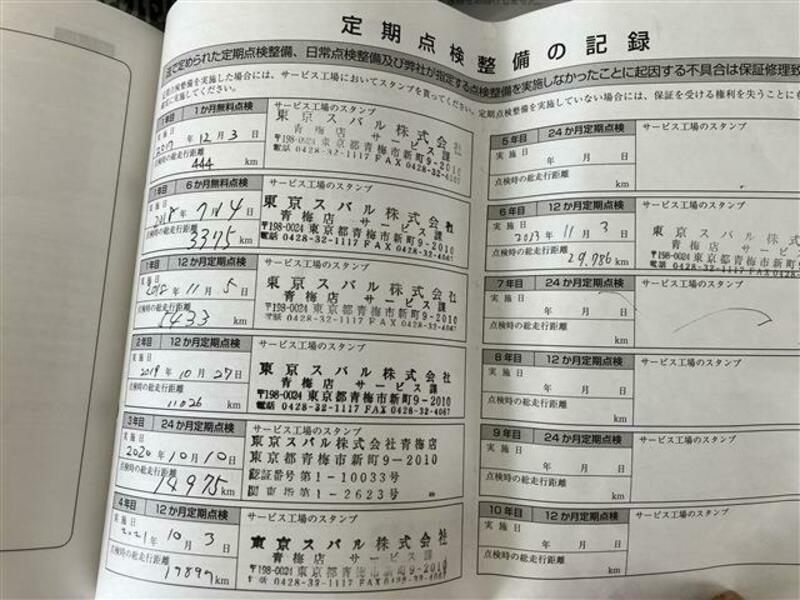 定期点検整備の記録
法で定められた定期点検整備、日常点検整備及び弊社が指定する点検整備を実施しなかったことに起因する不具合は保証修理致
定期点検整備を実施した場合には、サービス工場においてスタンプを貰ってください。定期点検整備を実施していない場合には、保証を受ける権利を失うことにも
実に実施してください。
1年目 1か月無料点検 サービス工場のスタンプ
実施日
2017年12月3日
点検時の総走行距離
444 km
東京スバル株式会社
青梅店 サービス課
〒198-0024 東京都青梅市新町9-2010
電話 0428-32-1117 FAX 0428-32-4067
1年目 6か月無料点検 サービス工場のスタンプ
実施日
2018年7月4日
点検時の総走行距離
3375 km
東京スバル株式会社
青梅店 サービス課
〒198-0024 東京都青梅市新町9-2010
電話 0428-32-1117 FAX 0428-32-4067
1年目 12か月定期点検 サービス工場のスタンプ
実施日
2018年11月5日
点検時の総走行距離
5433 km
東京スバル株式会社
青梅店 サービス課
〒198-0024 東京都青梅市新町9-2010
電話 0428-32-1117 FAX 0428-32-4067
2年目 12か月定期点検 サービス工場のスタンプ
実施日
2019年10月27日
点検時の総走行距離
11026 km
東京スバル株式会社
青梅店 サービス課
〒198-0024 東京都青梅市新町9-2010
電話 0428-32-1117 FAX 0428-32-4067
3年目 24か月定期点検 サービス工場のスタンプ
実施日
2020年10月10日
点検時の総走行距離
14975 km
東京スバル株式会社青梅店
東京都青梅市新町9-2010
認証番号第1-10033号
関東指第1-2623号
4年目 12か月定期点検 サービス工場のスタンプ
実施日
2021年10月3日
点検時の総走行距離
17897 km
東京スバル株式会社
青梅店 サービス課
〒198-0024 東京都青梅市新町9-2010
電話 0428-32-1117 FAX 0428-32-4067
5年目 24か月定期点検 サービス工場のスタンプ
実施日
年 月 日
点検時の総走行距離
km
6年目 12か月定期点検 サービス工場のスタンプ
実施日
2013年11月3日
点検時の総走行距離
29.786 km
東京スバル株式
青梅店 サービス
〒198-0024 東京都青梅市新町
電話 0428-32-1117 FAX
7年目 24か月定期点検 サービス工場のスタンプ
実施日
年 月 日
点検時の総走行距離
km
8年目 12か月定期点検 サービス工場のスタンプ
実施日
年 月 日
点検時の総走行距離
km
9年目 24か月定期点検 サービス工場のスタンプ
実施日
年 月 日
点検時の総走行距離
km
10年目 12か月定期点検 サービス工場のスタンプ
実施日
年 月 日
点検時の総走行距離
km